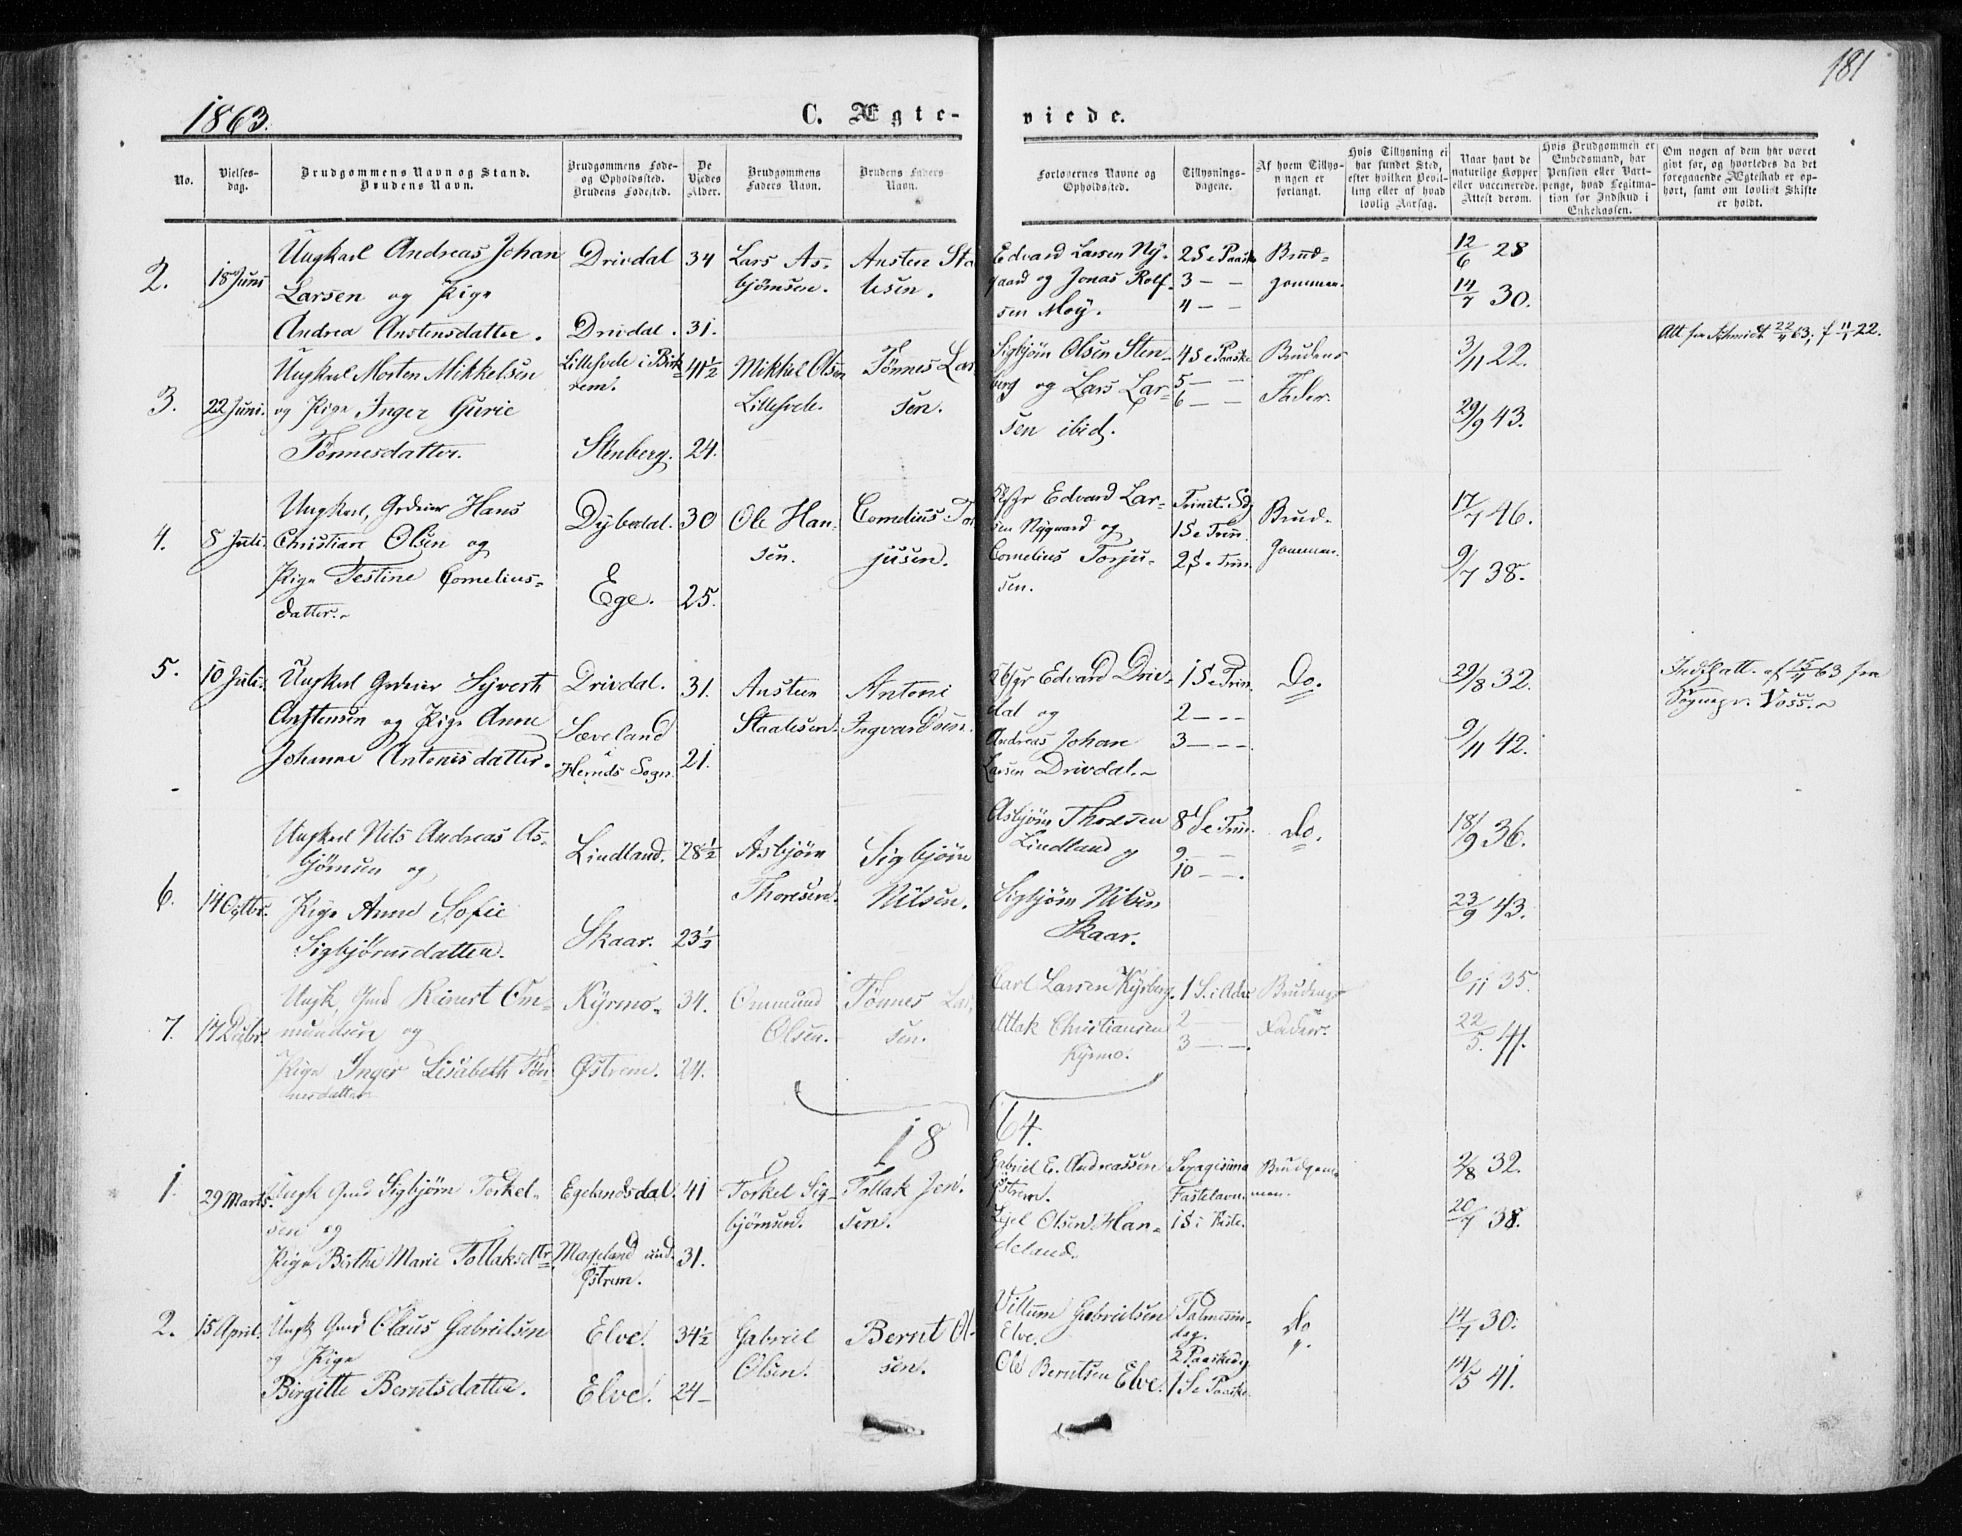 181
1863.
C. Ægte-
viede.
No.
Vielses-
dag.
Brudgommens Navn og Stand.
Brudens Navn.
Brudgommens Føde-
og Opholdssted.
Brudens Fødested.
De
Viedes
Alder.
Brudgommens
Faders Navn.
Brudens Faders
Navn.
Forlovernes Navne og
Opholdsted.
Tillysnings-
dagene.
Af hvem Tillys-
ningen er
forlangt.
Hvis Tillysning ei
har fundet Sted,
efter hvilken Bevil-
ling eller af hvad
lovlig Aarsag.
Naar havt de
naturlige Kopper
eller vaccinerede.
Attest derom.
Hvis Brudgommen er
Embedsmand, har
Pension eller Vart-
penge, hvad Legitima-
tion for Indskud i
Enkekassen.
Om nogen af dem har været
givt før, og hvorledes da det
foregaaende Ægteskab er op-
hørt, samt om lovligt Skifte
er holdt.
2.
18 Juni
Ungkarl Andreas Johan
Larsen og Pige
Andrea Austensdatter.
Drivdal
Drivdal.
34
31.
Lars As-
bjørnsen.
Austen Sta
lesen.
Edvard Larsen Ny-
gaard og Jonas Rolf-
sen Moy.
2 S e Paaske
3 — —
4 — —
Brud-
gommen.
12/6 28
14/7 30.
3.
22 Juni.
Ungkarl Morten Mikkelsen
og Pige Inger Gurie
Tønnesdatter.
Lillehvede i Birk-
rem.
Stenberg.
41½
24.
Mikkel Olsen
Lillehvede.
Tønnes Lar
sen.
Sigbjørn Olsen Sten-
berg og Lars Lar-
sen ibid.
4 S e Paaske
5 — —
6 — —
Brudens
Fader.
3/11 22.
29/9 43.
Att fra Schmidt 22/4 63; f 11/1 22.
4.
8 Juli.
Ungkarl, Grdeier Hans
Christian Olsen og
Pige Testine Cornelius-
datter.
Dybedal.
Ege.
30
25.
Ole Han-
sen.
Cornelius Tor
jusen.
Edvard Lar-
sen Nygaard og
Cornelius Torju-
sen.
Trinit. Sdg
1 S e Trin.
2 S e Trin.
Brud-
gommen.
17/7 46.
9/7 38.
5.
10 Juli.
Ungkarl Grdeier Syvert
Austensen og Pige Anne
Johanne Antonisdatter.
Drivdal.
Sæveland
i
Hetnds Sogn.
31.
21.
Austen
Staalesen.
Antoni
Ingvardsen.
Edvard Driv-
dal og
Andreas Johan
Larsen Drivdal.
1 S e Trin.
2 — — —
3 — — —
Do.
29/8 32.
9/11 42.
att. af 15/7 63 fra
Sognepr. Voss.
6.
14 Octbr.
Ungkarl Nils Andreas As-
bjørnsen og
Pige Anne Sofie
Sigbjørnsdatter.
Lindland.
Skaar.
28½
23½
Asbjørn
Thoresen.
Sigbjørn
Nilsen.
Asbjørn Thorsen
Lindland og
Sigbjørn Nilsen
Skaar.
8 S e Trin.
9 — —
10 — —.
do.
18/9 36.
23/9 43.
7.
17 Decbr.
Ungk, Gmd Reinert Om-
mundsen og
Pige Inger Lisabeth Tøn-
nesdatter
Kyrmo.
Østrem.
34.
24.
Ommund
Olsen.
Tønnes Lar
sen.
Carl Larsen Kysberg.
Attak Christiansen
Kyrmo.
1 S. i Adv.
2 — —
3 — —.
Brudens
Fader.
6/11 35.
22/5. 41.
18
64.
1.
29 Marts.
Ungk Gmd Sigbjørn Torkel-
sen og
Pige Birthe Marie Tollaksdtr.
Egelandsdal.
Mageland und.
Østrem.
41
31.
Torkel Sig-
bjørnsen.
Tollak Jen
sen.
Gabriel E. Andreassen
Østrem.
Kjel Olsen Han-
deland.
Sexagisima
Fastelavn.
1 S i Faste.
Brudgom-
men.
2/8 32.
20/7 38.
2.
15 April.
Ungk Gmd Olaus Gabrielsen
og Pige
Birgitte Berntsdatter.
Elve.
Elve.
34½
24—
Gabriel
Olsen.
Bernt Ol-
sen.
Villum Gabrielsen
Elve.
Ole Berntsen Elve.
Palmesøn-
dag.
2 Paaskedg
1 S e Paaske.
do
14/7 30.
14/5 41.